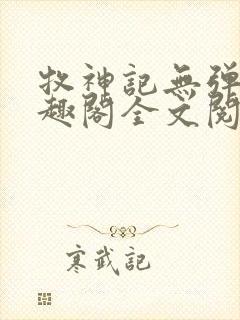 牧神記無弾
趣閣全文閱
寒武記